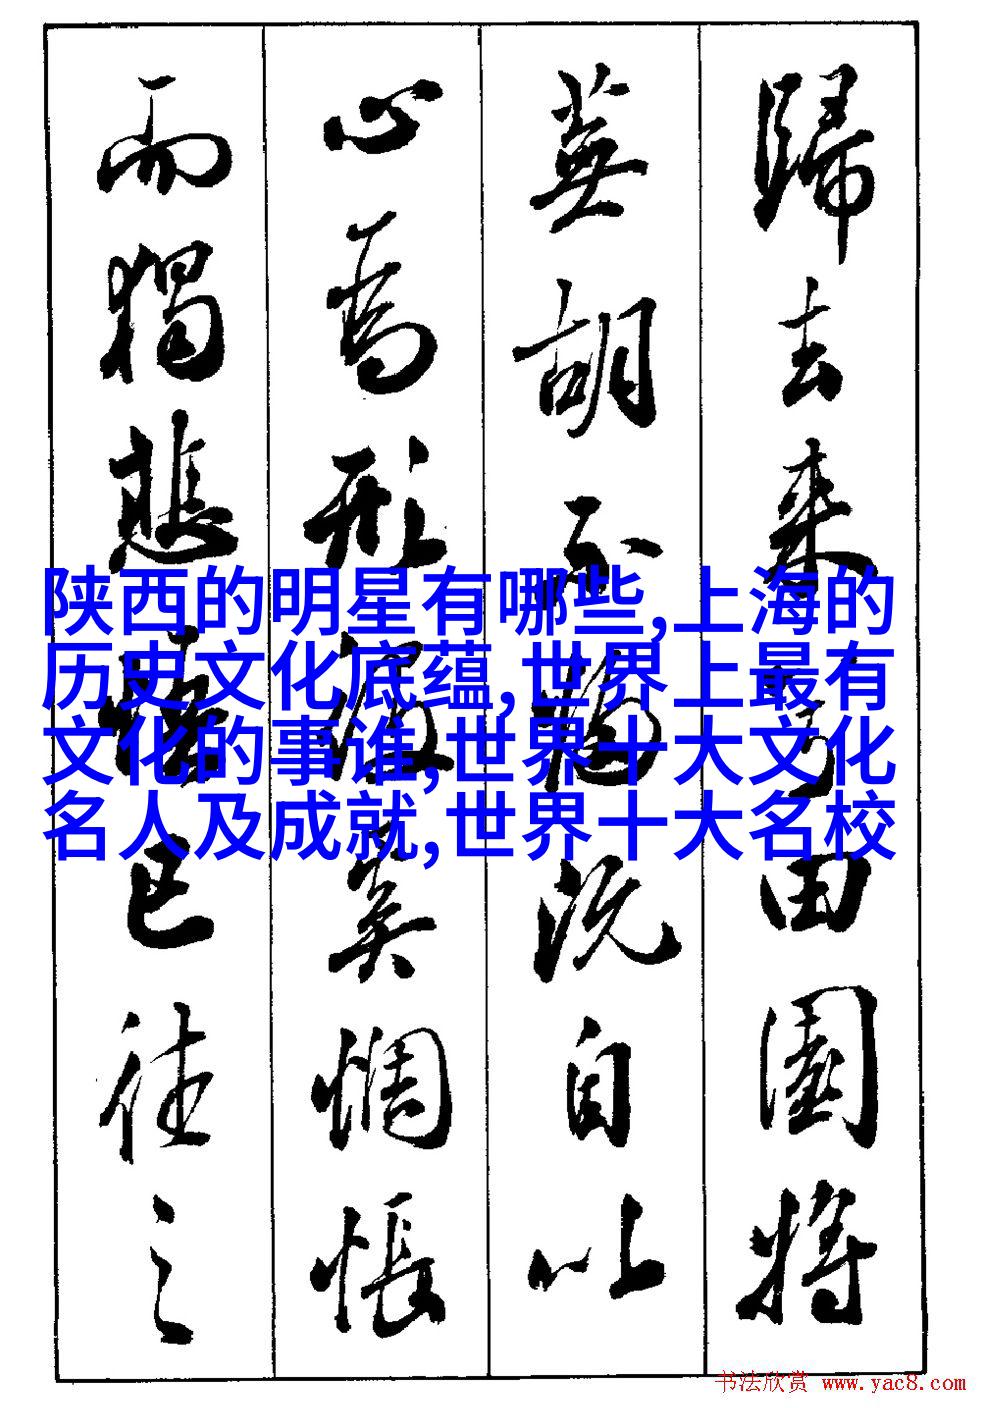 歸去来兮田園將
蕪胡不歸既自以
心為形役奚惆悵
而獨悲悟已往之
陕西的明星有哪些,上海的
历史文化底蕴,世界上最有
文化的事谁,世界十大文化
名人及成就,世界十大名校
书法欣赏 www.yac8.com